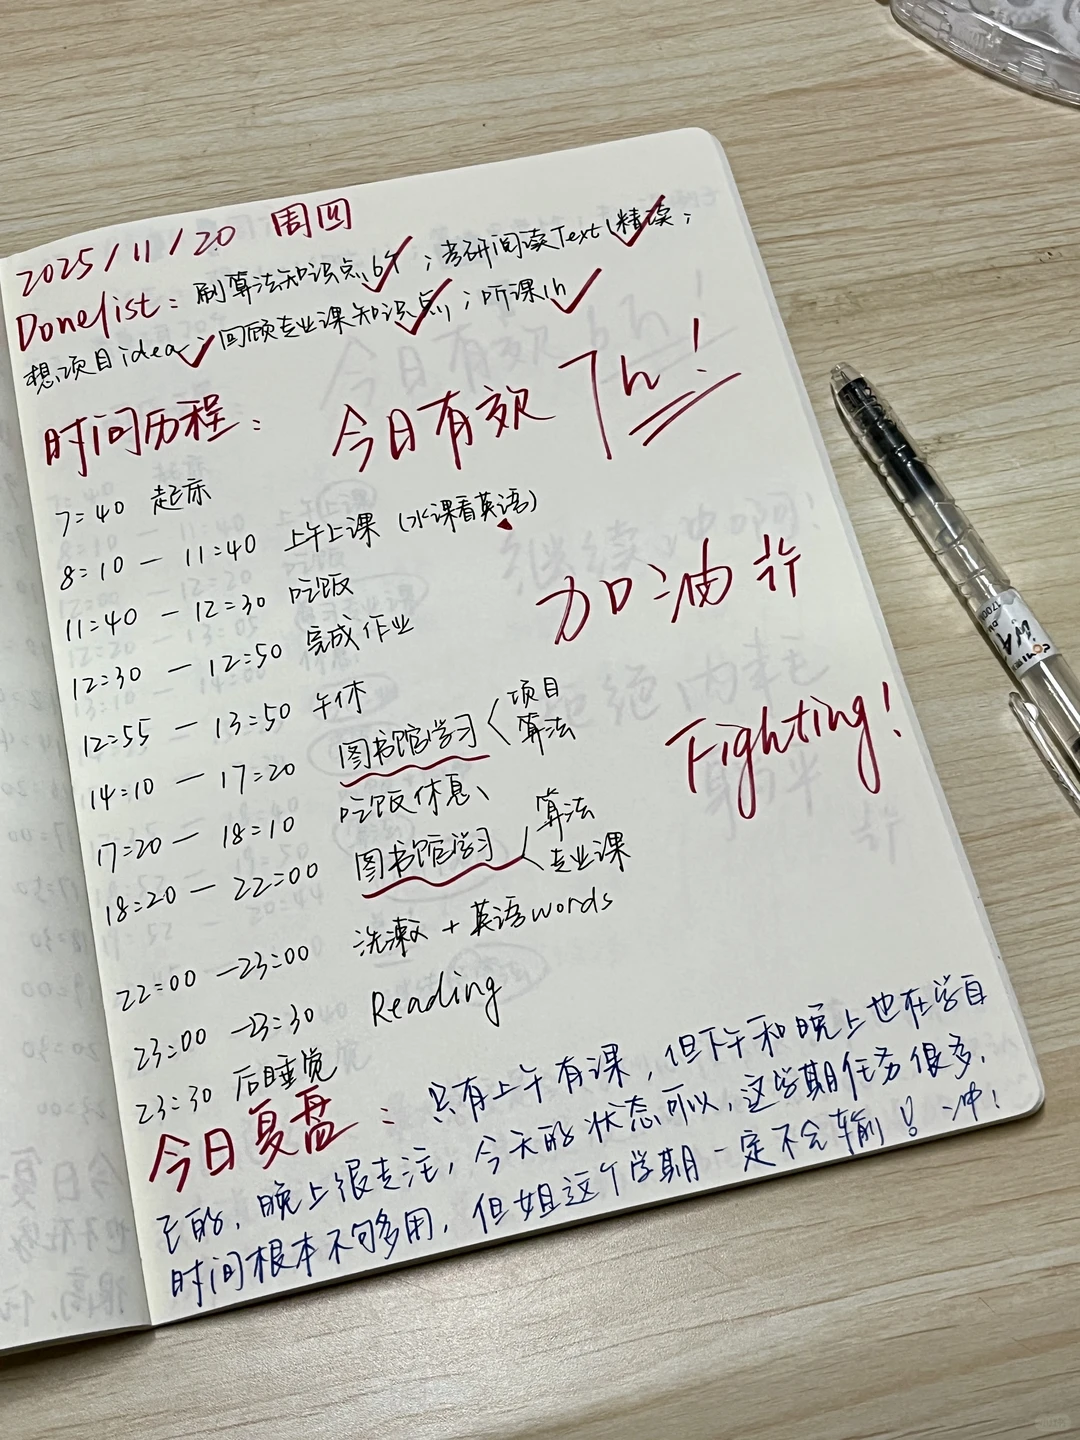 2025/11/20 周四
Donelist: 刷算法知识点6个；考研阅读Text1精读；
想项目idea；回顾专业课知识点；听课1h
时间历程： 今日有效 7h!
7:40 起床
8:10 — 11:40 上午上课（水课看英语）
11:40 — 12:30 吃饭
12:30 — 12:50 完成作业
12:55 — 13:50 午休
14:10 — 17:20 图书馆学习 项目 算法
17:20 — 18:10 吃饭休息、
18:20 — 22:00 图书馆学习 算法 专业课
22:00 — 23:00 洗漱 + 英语words
23:00 — 23:30 Reading
23:30 后睡觉
加油
Fighting!
今日复盘： 只有上午有课，但下午和晚上也在学自
己的，晚上很专注，今天的状态可以，这学期任务很多，
时间根本不够多用，但姐这个学期一定不会输！冲！